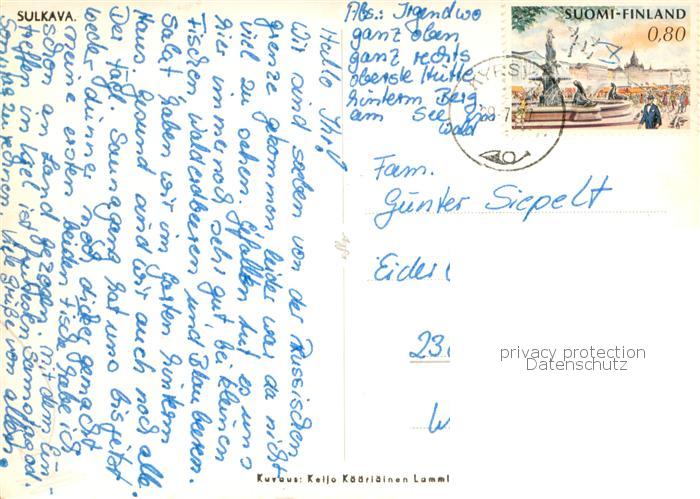 SULKAVA.
Hallo Ihr!
Wir sind soeben von der Russischen
grenze gekommen leider war da nicht
viel zu sehen. Gefallen tut es uns
hier immer noch sehr gut, bei kleinen
Fischen Walderdbeeren und Blaubeeren.
Salat haben wir im Garten hinterm
Haus gesund sind wir auch noch alle.
Der tägl. Saunagang hat uns bis jetzt
weder dünner noch dicker gemacht
meine ersten beiden Fische habe ich
schon an Land gezogen. mit dem Ein-
treffen im Igel ist
Sonntag zu rechnen. Viele Grüße von allen.
Abs.: Irgendwo
ganz oben
ganz rechts
oberste Hütte
hinterm Berg
am See im
Wald
SUOMI-FINLAND
0,80
Fam.
Günter Siepelt
Eider
23
W
privacy protection
Datenschutz
Kuvaus: Keijo Kääriäinen Lammi